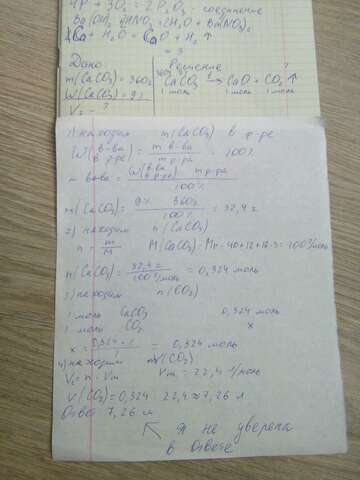 4P + 3O₂ = 2P₂O₃ - соединение
Ba(OH)₂ + 2HNO₃ = 2H₂O + Ba(NO₃)₂
Ca + H₂O = CaO + H₂ ↑
= 3
Дано
m(CaCO₃) = 360г
W(CaCO₃) = 9%
V₂ = ?
Решение
360г ?
CaCO₃ t→ CaO + CO₂ ↑
1 моль 1 моль
1) находим m(CaCO₃) в р-ре
W(в-ва в р-ре) = m в-ва / m р-ра = 100%
m в-ва = W(в-ва в р-ре) m р-ра / 100%
m(CaCO₃) = 9% 360г / 100% = 32,4 г
2) находим n(CaCO₃)
n = m/M M(CaCO₃) = Mr = 40+12+16·3 = 100 г/моль
n(CaCO₃) = 32,4 г / 100 г/моль = 0,324 моль
3) находим n(CO₂)
1 моль CaCO₃ 0,324 моль
1 моль CO₂ x
x = 0,324 · 1 / 1 = 0,324 моль
4) находим V(CO₂)
V = n · Vm Vm = 22,4 л/моль
V(CO₂) = 0,324 · 22,4 ≈ 7,26 л
Ответ 7,26 л
Я не уверена
в ответе